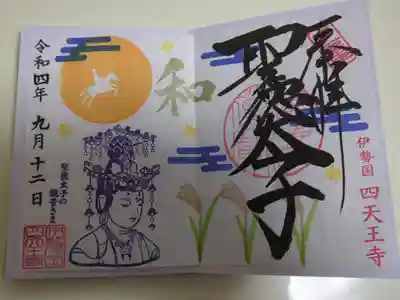 奉拝
聖徳太子
伊勢国 四天王寺
和
聖徳太子の
観音さま
令和四年 九月十二日